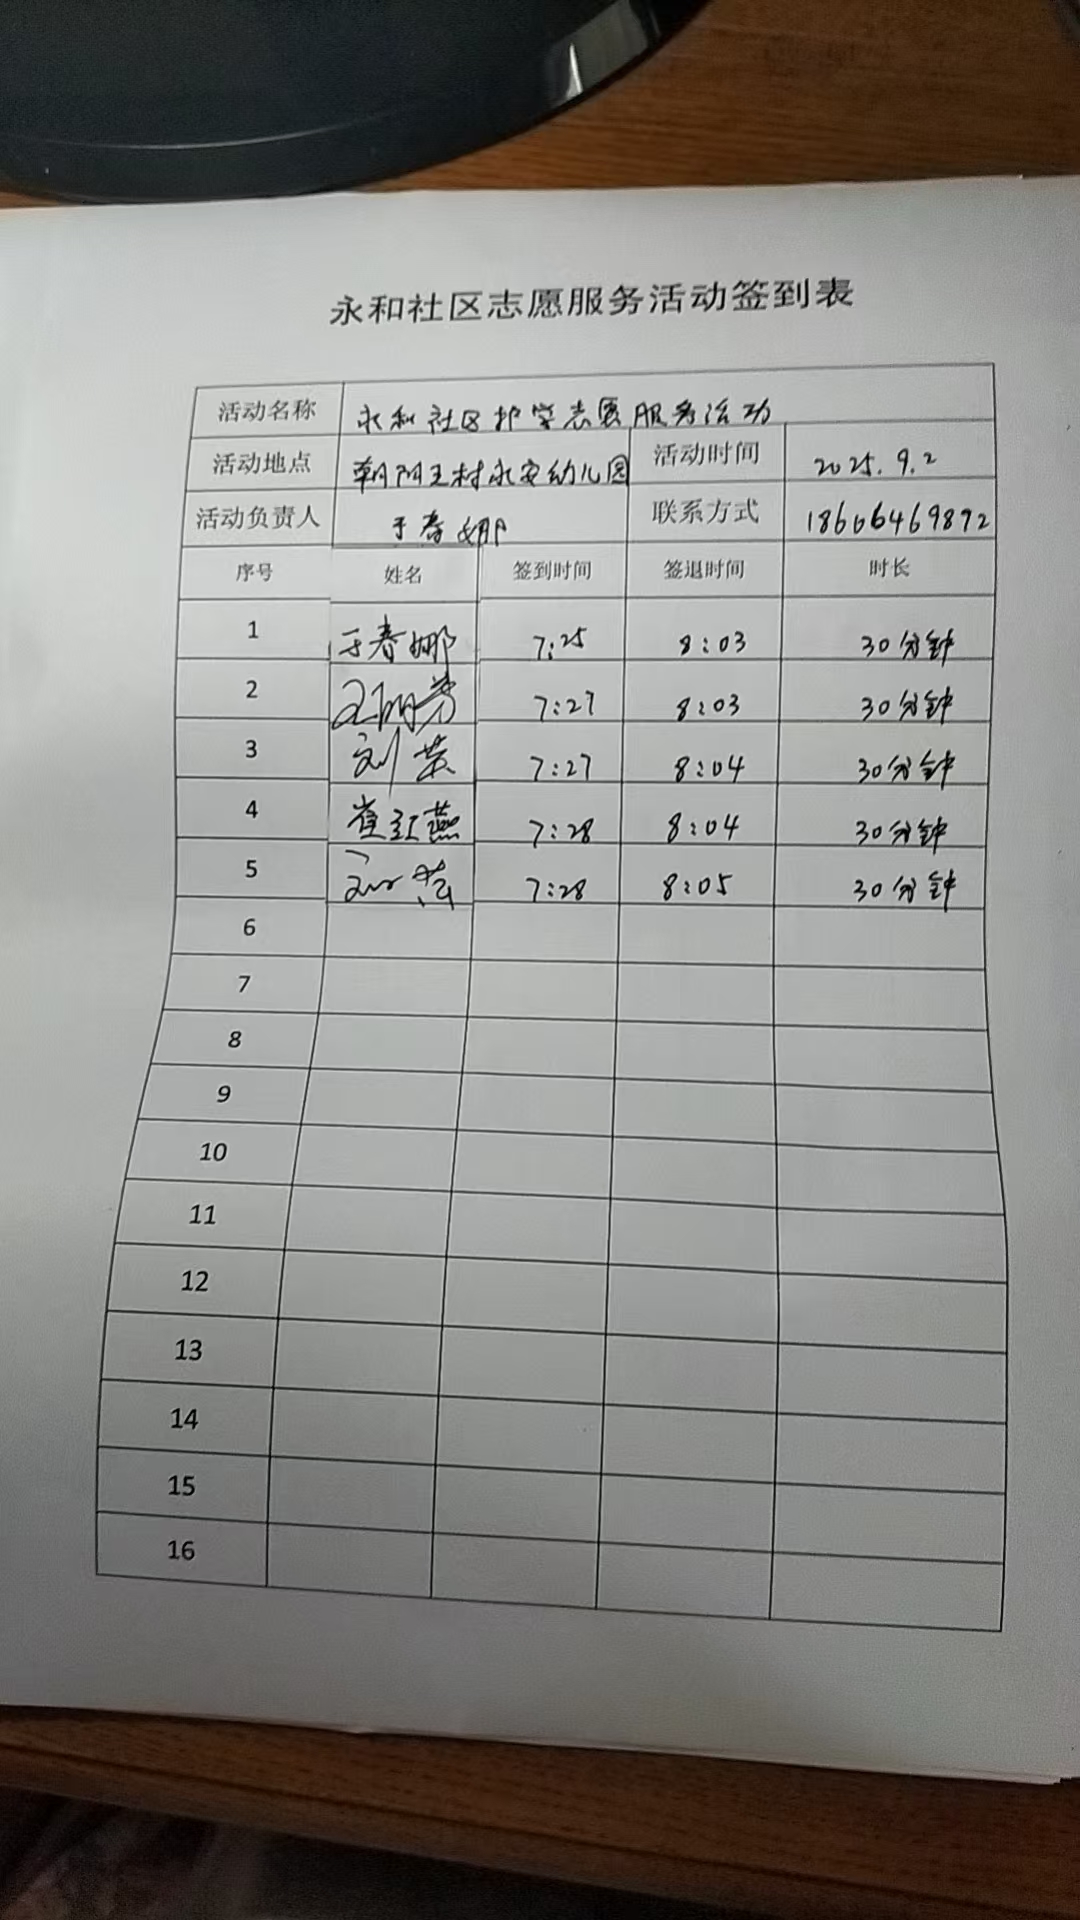 永和社区志愿服务活动签到表
活动名称 永和社区护学志愿服务活动
活动地点 朝阳王村永安幼儿园 活动时间 2025.9.2
活动负责人 于春娜 联系方式 18606469892
序号 姓名 签到时间 签退时间 时长
1 于春娜 7:25 8:03 30分钟
2 7:27 8:03 30分钟
3 刘 7:27 8:04 30分钟
4 崔红燕 7:28 8:04 30分钟
5 7:28 8:05 30分钟
6
7
8
9
10
11
12
13
14
15
16